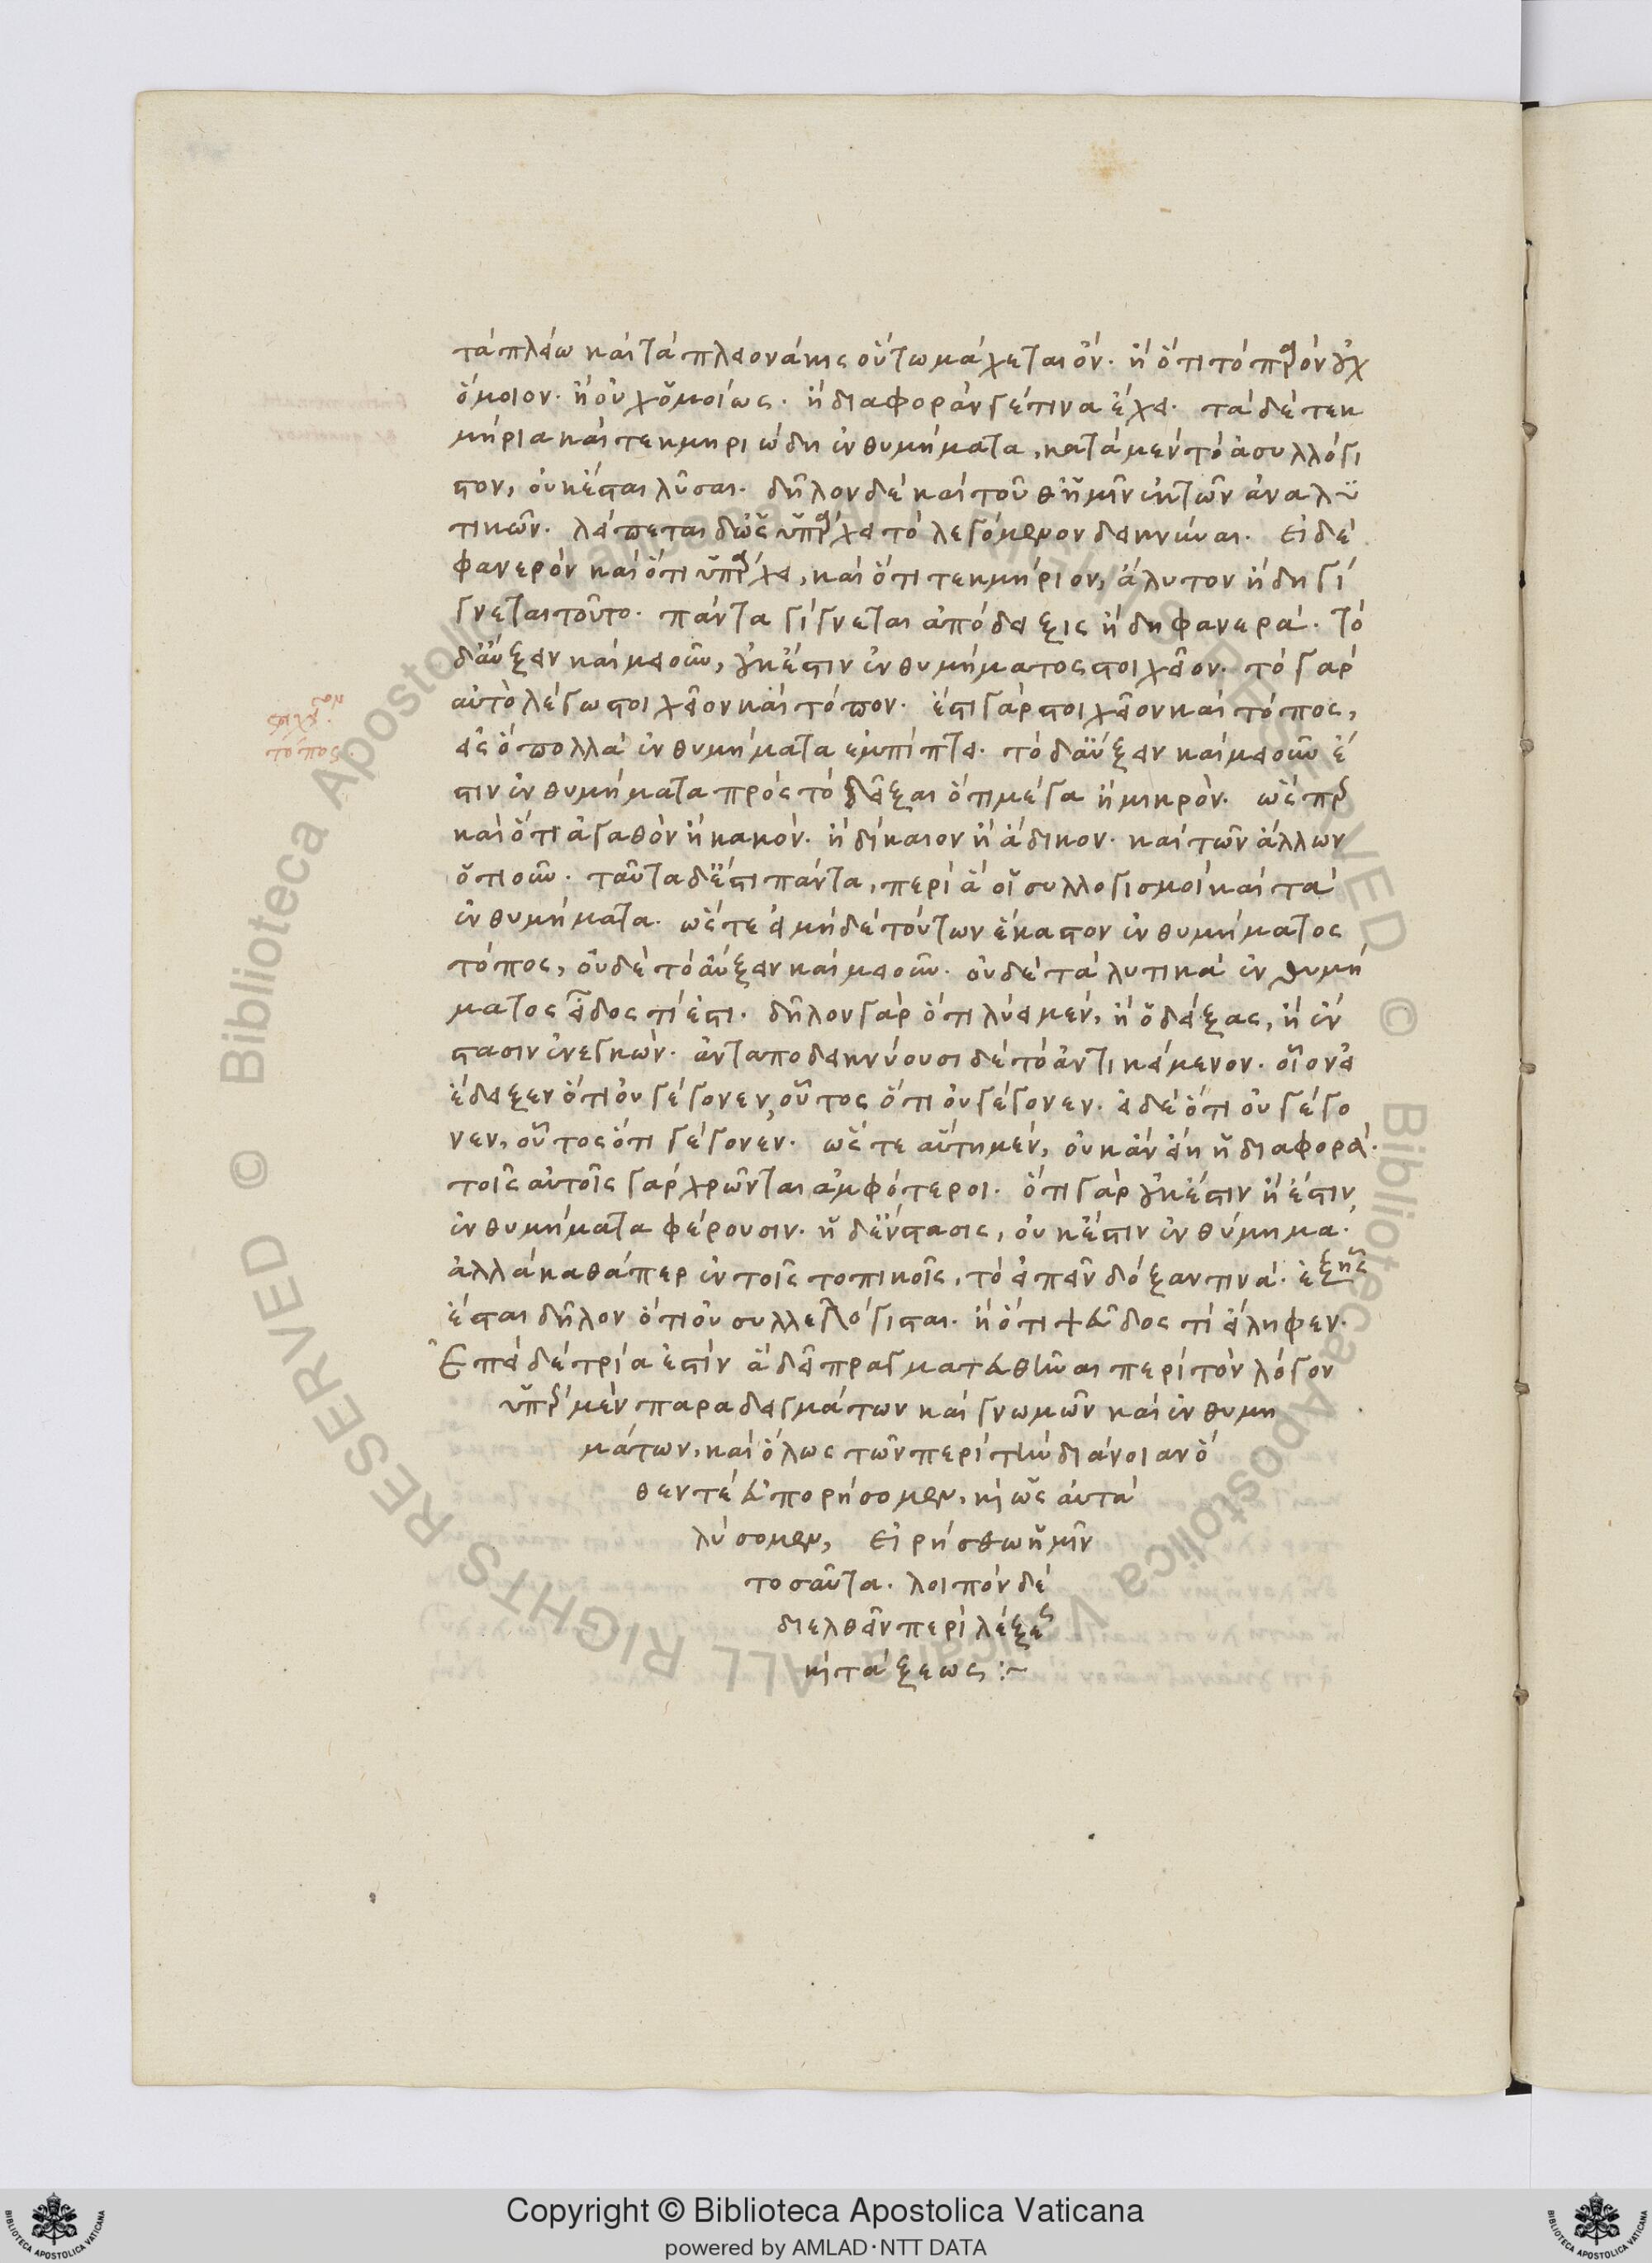 τὰ πλείω καὶ τὰ πλεονάκις οὕτω μάχεται ὂν. ἢ ὅτι τὸ παρὸν οὐχ
ὅμοιον. ἢ οὐχ ὁμοίως. ἢ διαφορὰν γέ τινα ἔχει. τὰ δὲ τεκ
μήρια καὶ τεκμηριώδη ἐνθυμήματα, κατὰ μὲν τὸ ἀσυλλόγι
στον, οὐκ ἔσται λῦσαι. δῆλον δὲ καὶ τοῦθ ἡμῖν ἐκ τῶν ἀναλυ
τικῶν. λείπεται δ ὡς ὑπάρχει τὸ λεγόμενον δεικνύναι. εἰ δὲ
φανερὸν καὶ ὅτι ὑπάρχει, καὶ ὅτι τεκμήριον, ἄλυτον ἤδη γί
γνεται τοῦτο. πάντα γίγνεται ἀπόδειξις ἤδη φανερά. τὸ
δ αὔξειν καὶ μειοῦν, οὐκ ἔστιν ἐνθυμήματος στοιχεῖον. τὸ γὰρ
αὐτὸ λέγω στοιχεῖον καὶ τόπον. ἔστι γὰρ στοιχεῖον καὶ τόπος,
εἰς ὃ πολλὰ ἐνθυμήματα ἐμπίπτει. τὸ δ αὔξειν καὶ μειοῦν ἔ
στιν ἐνθυμήματα πρὸς τὸ δεῖξαι ὅτι μέγα ἢ μικρὸν. ὥσπερ
καὶ ὅτι ἀγαθὸν ἢ κακὸν. ἢ δίκαιον ἢ ἄδικον. καὶ τῶν ἄλλων
ὁτιοῦν. ταῦτα δ ἔστι πάντα, περὶ ἃ οἱ συλλογισμοὶ καὶ τὰ
ἐνθυμήματα. ὥστε εἰ μὴ δὲ τούτων ἕκαστον ἐνθυμήματος
τόπος, οὐδὲ τὸ αὔξειν καὶ μειοῦν. οὐδὲ τὰ λυτικὰ ἐνθυμή
ματος εἶδος τί ἐστι. δῆλον γὰρ ὅτι λύει μὲν, ἢ ὁ δείξας, ἢ ἔν
στασιν ἐνεγκὼν. ἀνταποδεικνύουσι δὲ τὸ ἀντικείμενον. οἷον εἰ
ἔδειξεν ὅτι οὐ γέγονεν, οὗτος ὅτι οὐ γέγονεν. εἰ δὲ ὅτι οὐ γέγο
νεν, οὗτος ὅτι γέγονεν. ὥστε αὕτη μὲν, οὐκ ἂν εἴη ἡ διαφορά.
τοῖς αὐτοῖς γὰρ χρῶνται ἀμφότεροι. ὅτι γὰρ οὐκ ἔστιν ἢ ἔστιν,
ἐνθυμήματα φέρουσιν. ἡ δ ἔνστασις, οὐκ ἔστιν ἐνθύμημα.
ἀλλὰ καθάπερ ἐν τοῖς τοπικοῖς, τὸ εἰπεῖν δόξαν τινὰ. ἐξ ἧς
ἔσται δῆλον ὅτι οὐ συλλελόγισται. ἢ ὅτι ψεῦδος τί εἴληφεν.
Ἐπεὶ δὲ τρία ἐστὶν ἃ δεῖ πραγματευθῆναι περὶ τὸν λόγον
ὑπὲρ μὲν παραδειγμάτων καὶ γνωμῶν καὶ ἐνθυμη
μάτων, καὶ ὅλως τῶν περὶ τὴν διάνοιαν ὅ
θεν τὲ εὐπορήσομεν, καὶ ὡς αὐτὰ
λύσομεν, εἰρήσθω ἡμῖν
τοσαῦτα. λοιπὸν δὲ
διελθεῖν περὶ λέξεως
καὶ τάξεως :~
Copyright © Biblioteca Apostolica Vaticana
powered by AMLAD·NTT DATA